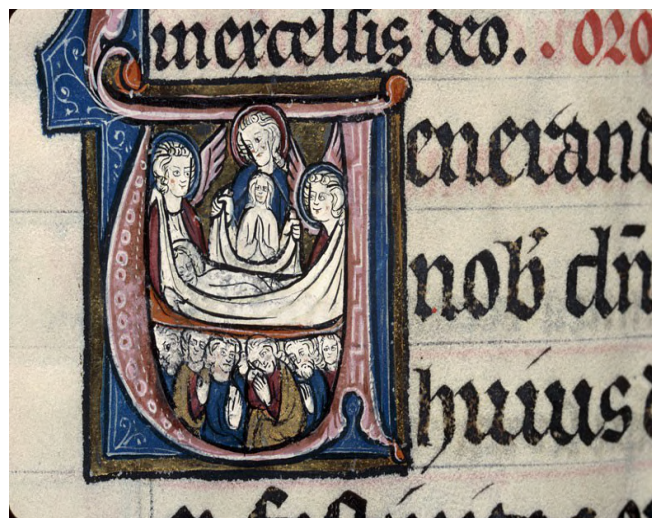 in excelsis deo. . ORO
Venerand
nob̄ dñ
huius